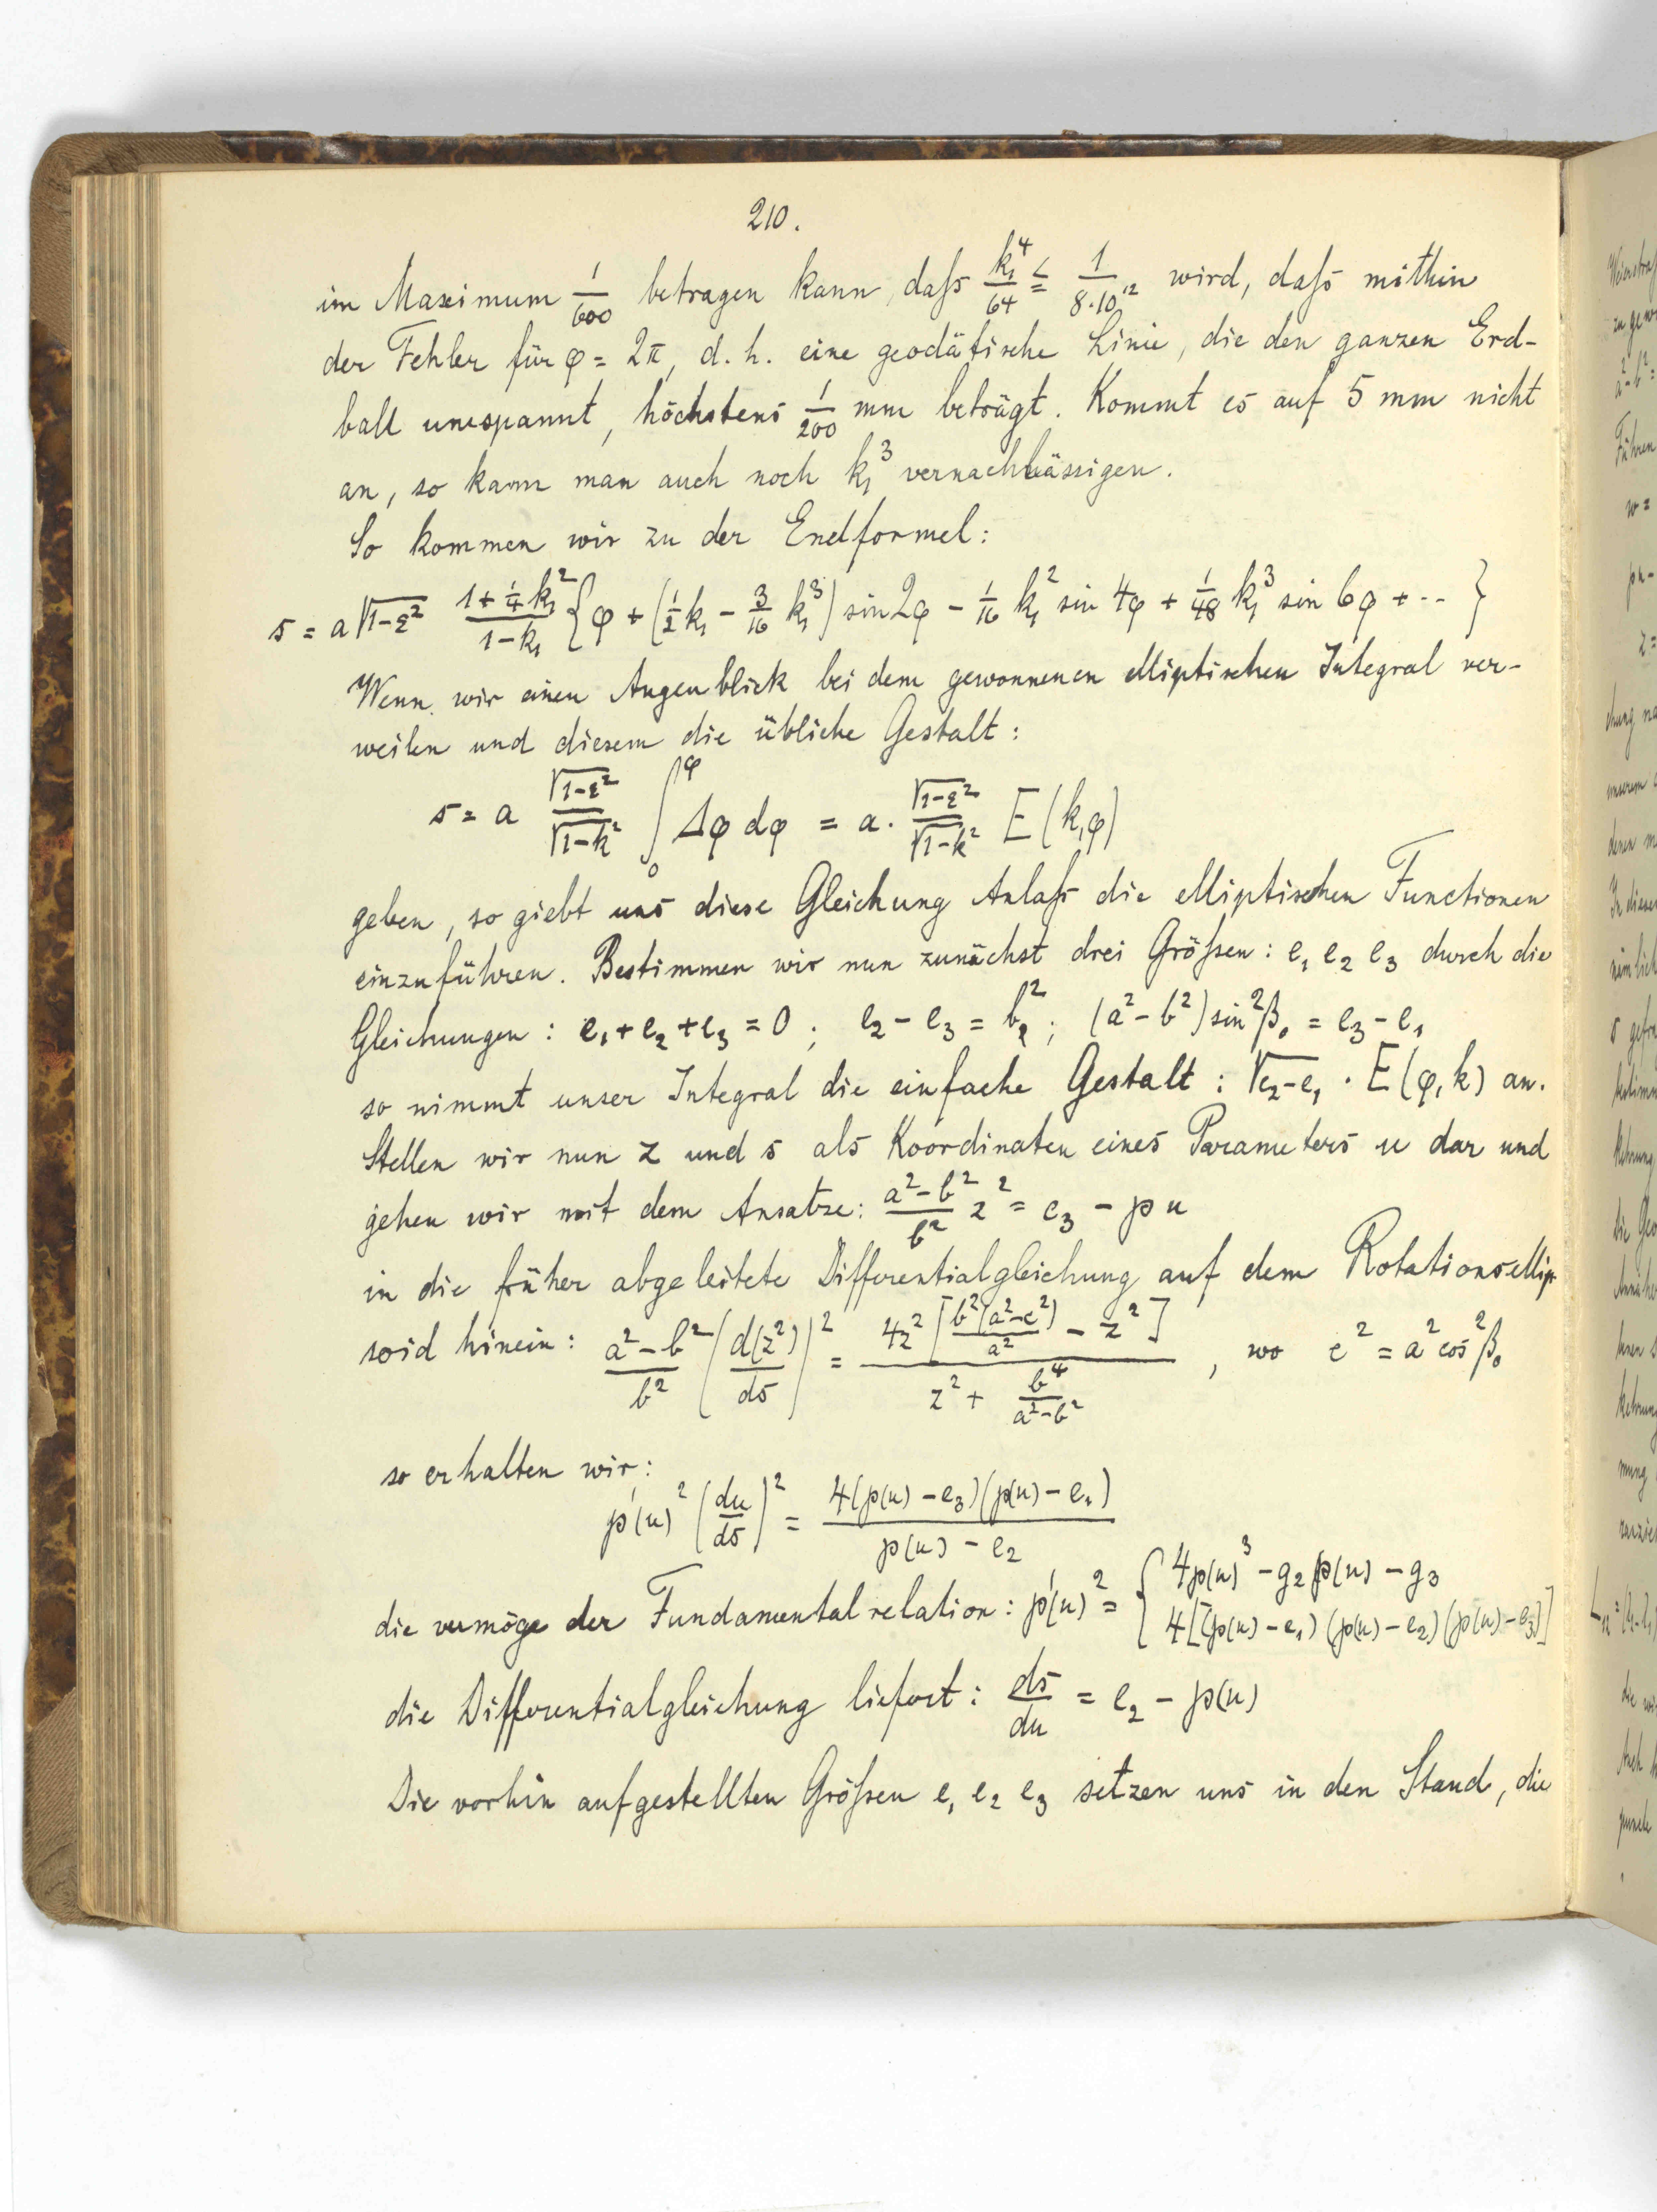 210.
im Maximum 1/600 betragen kann, daß k₁⁴/64 ≦ 1/(8·10¹²) wird, daß mithin
der Fehler für φ = 2π, d. h. eine geodätische Linie, die den ganzen Erd-
ball umspannt, höchstens 1/200 mm beträgt. Kommt es auf 5 mm nicht
an, so kann man auch noch k₁³ vernachlässigen.
So kommen wir zu der Endformel:
s = a√(1-ε²) (1+¼k₁²)/(1-k₁) {φ + (½k₁ - 3/16 k₁³) sin 2φ - 1/16 k₁² sin 4φ + 1/48 k₁³ sin 6φ + ·· }
Wenn wir einen Augenblick bei dem gewonnenen elliptischen Integral ver-
weilen und diesem die übliche Gestalt:
s = a √(1-ε²)/√(1-k²) ∫₀^φ Δφ dφ = a · √(1-ε²)/√(1-k²) E(k,φ)
geben, so giebt uns diese Gleichung Anlaß die elliptischen Functionen
einzuführen. Bestimmen wir nun zunächst drei Größen: e₁ e₂ e₃ durch die
Gleichungen: e₁ + e₂ + e₃ = 0; e₂ - e₃ = b²; (a² - b²) sin²β₀ = e₃ - e₁
so nimmt unser Integral die einfache Gestalt: √(e₂-e₁) · E(φ,k) an.
Stellen wir nun z und s als Koordinaten eines Parameters u dar und
gehen wir mit dem Ansatze: (a²-b²)/b² z² = e₃ - ℘u
in die früher abgeleitete Differentialgleichung auf dem Rotationsellip-
soid hinein: (a²-b²)/b² (d(z²)/ds)² = 4z² [b²(a²-c²)/a² - z²] / (z² + b⁴/(a²-b²)), wo c² = a² cos²β₀
so erhalten wir:
℘'(u)² (du/ds)² = 4(℘(u) - e₃)(℘(u) - e₁) / (℘(u) - e₂)
die vermöge der Fundamentalrelation: ℘'(u)² = { 4℘(u)³ - g₂℘(u) - g₃
4[(℘(u) - e₁)(℘(u) - e₂)(℘(u) - e₃)]
die Differentialgleichung liefert: ds/du = e₂ - ℘(u)
Die vorhin aufgestellten Größen e₁ e₂ e₃ setzen uns in den Stand, die